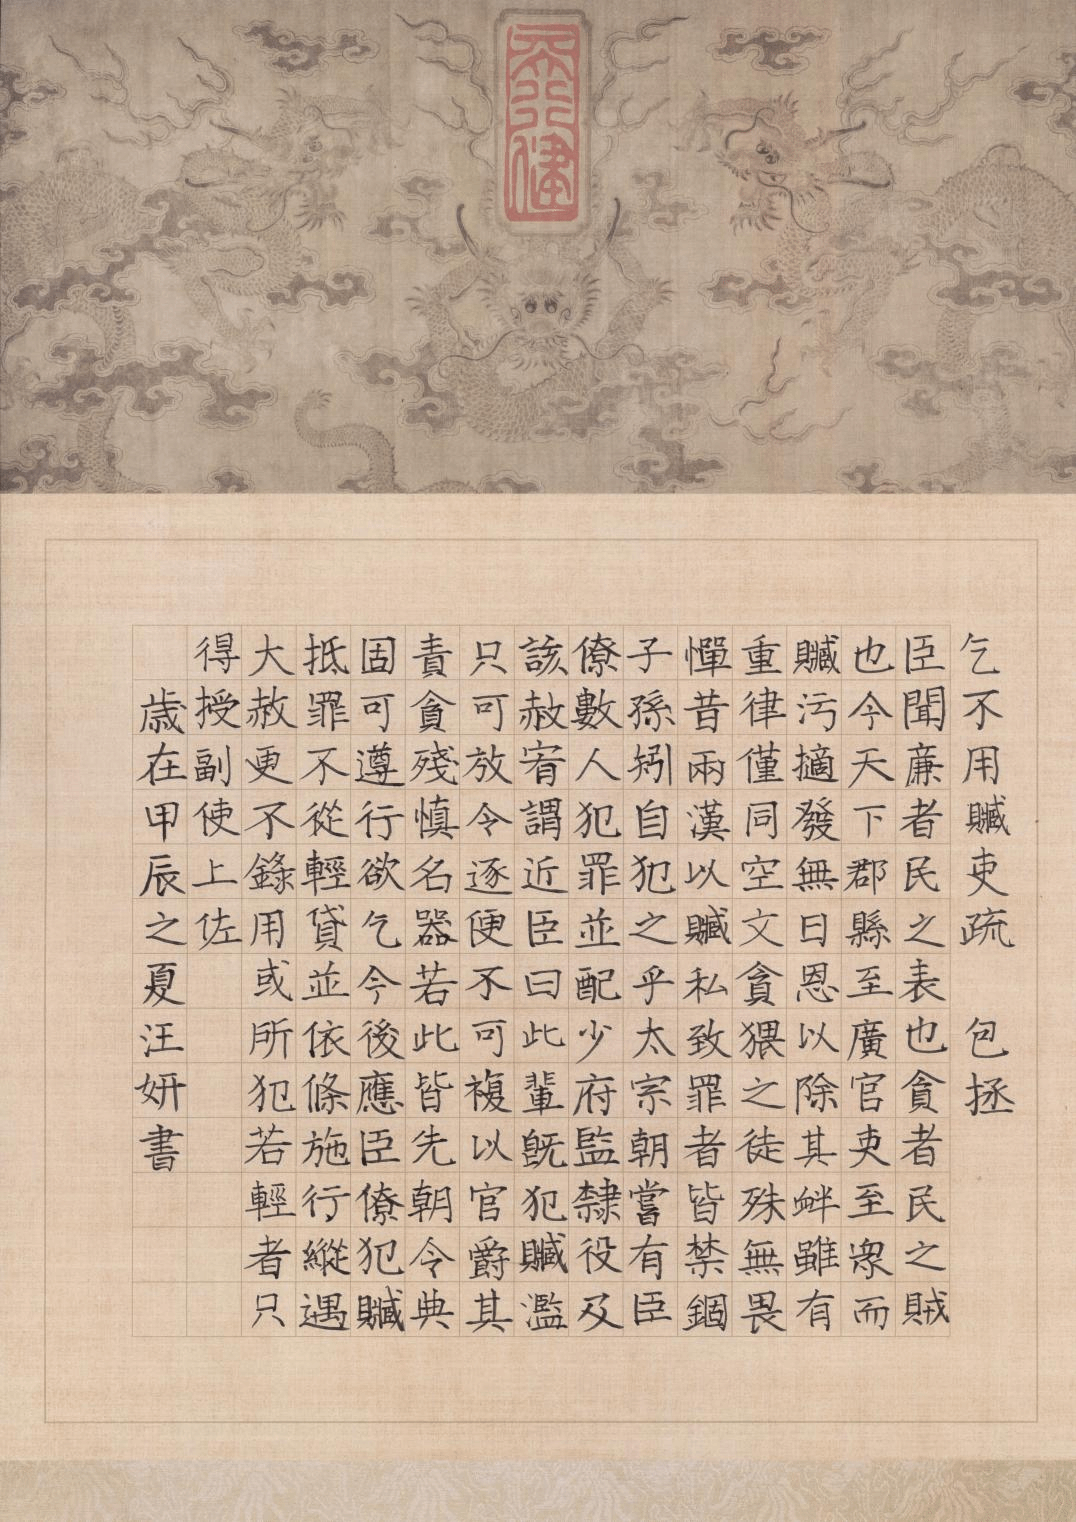 天行健
乞不用贓吏疏 包拯
臣聞廉者民之表也貪者民之賊
也今天下郡縣至廣官吏至衆而
贓污擿發無日恩以除其衅雖有
重律僅同空文貪猥之徒殊無畏
憚昔兩漢以贓私致罪者皆禁錮
子孫矧自犯之乎太宗朝嘗有臣
僚數人犯罪並配少府監隸役及
該赦宥謂近臣曰此輩既犯贓濫
只可放令逐便不可複以官爵其
責貪殘慎名器若此皆先朝令典
固可遵行欲乞今後應臣僚犯贓
抵罪不從輕貸並依條施行縱遇
大赦更不錄用或所犯若輕者只
得授副使上佐
歲在甲辰之夏汪妍書